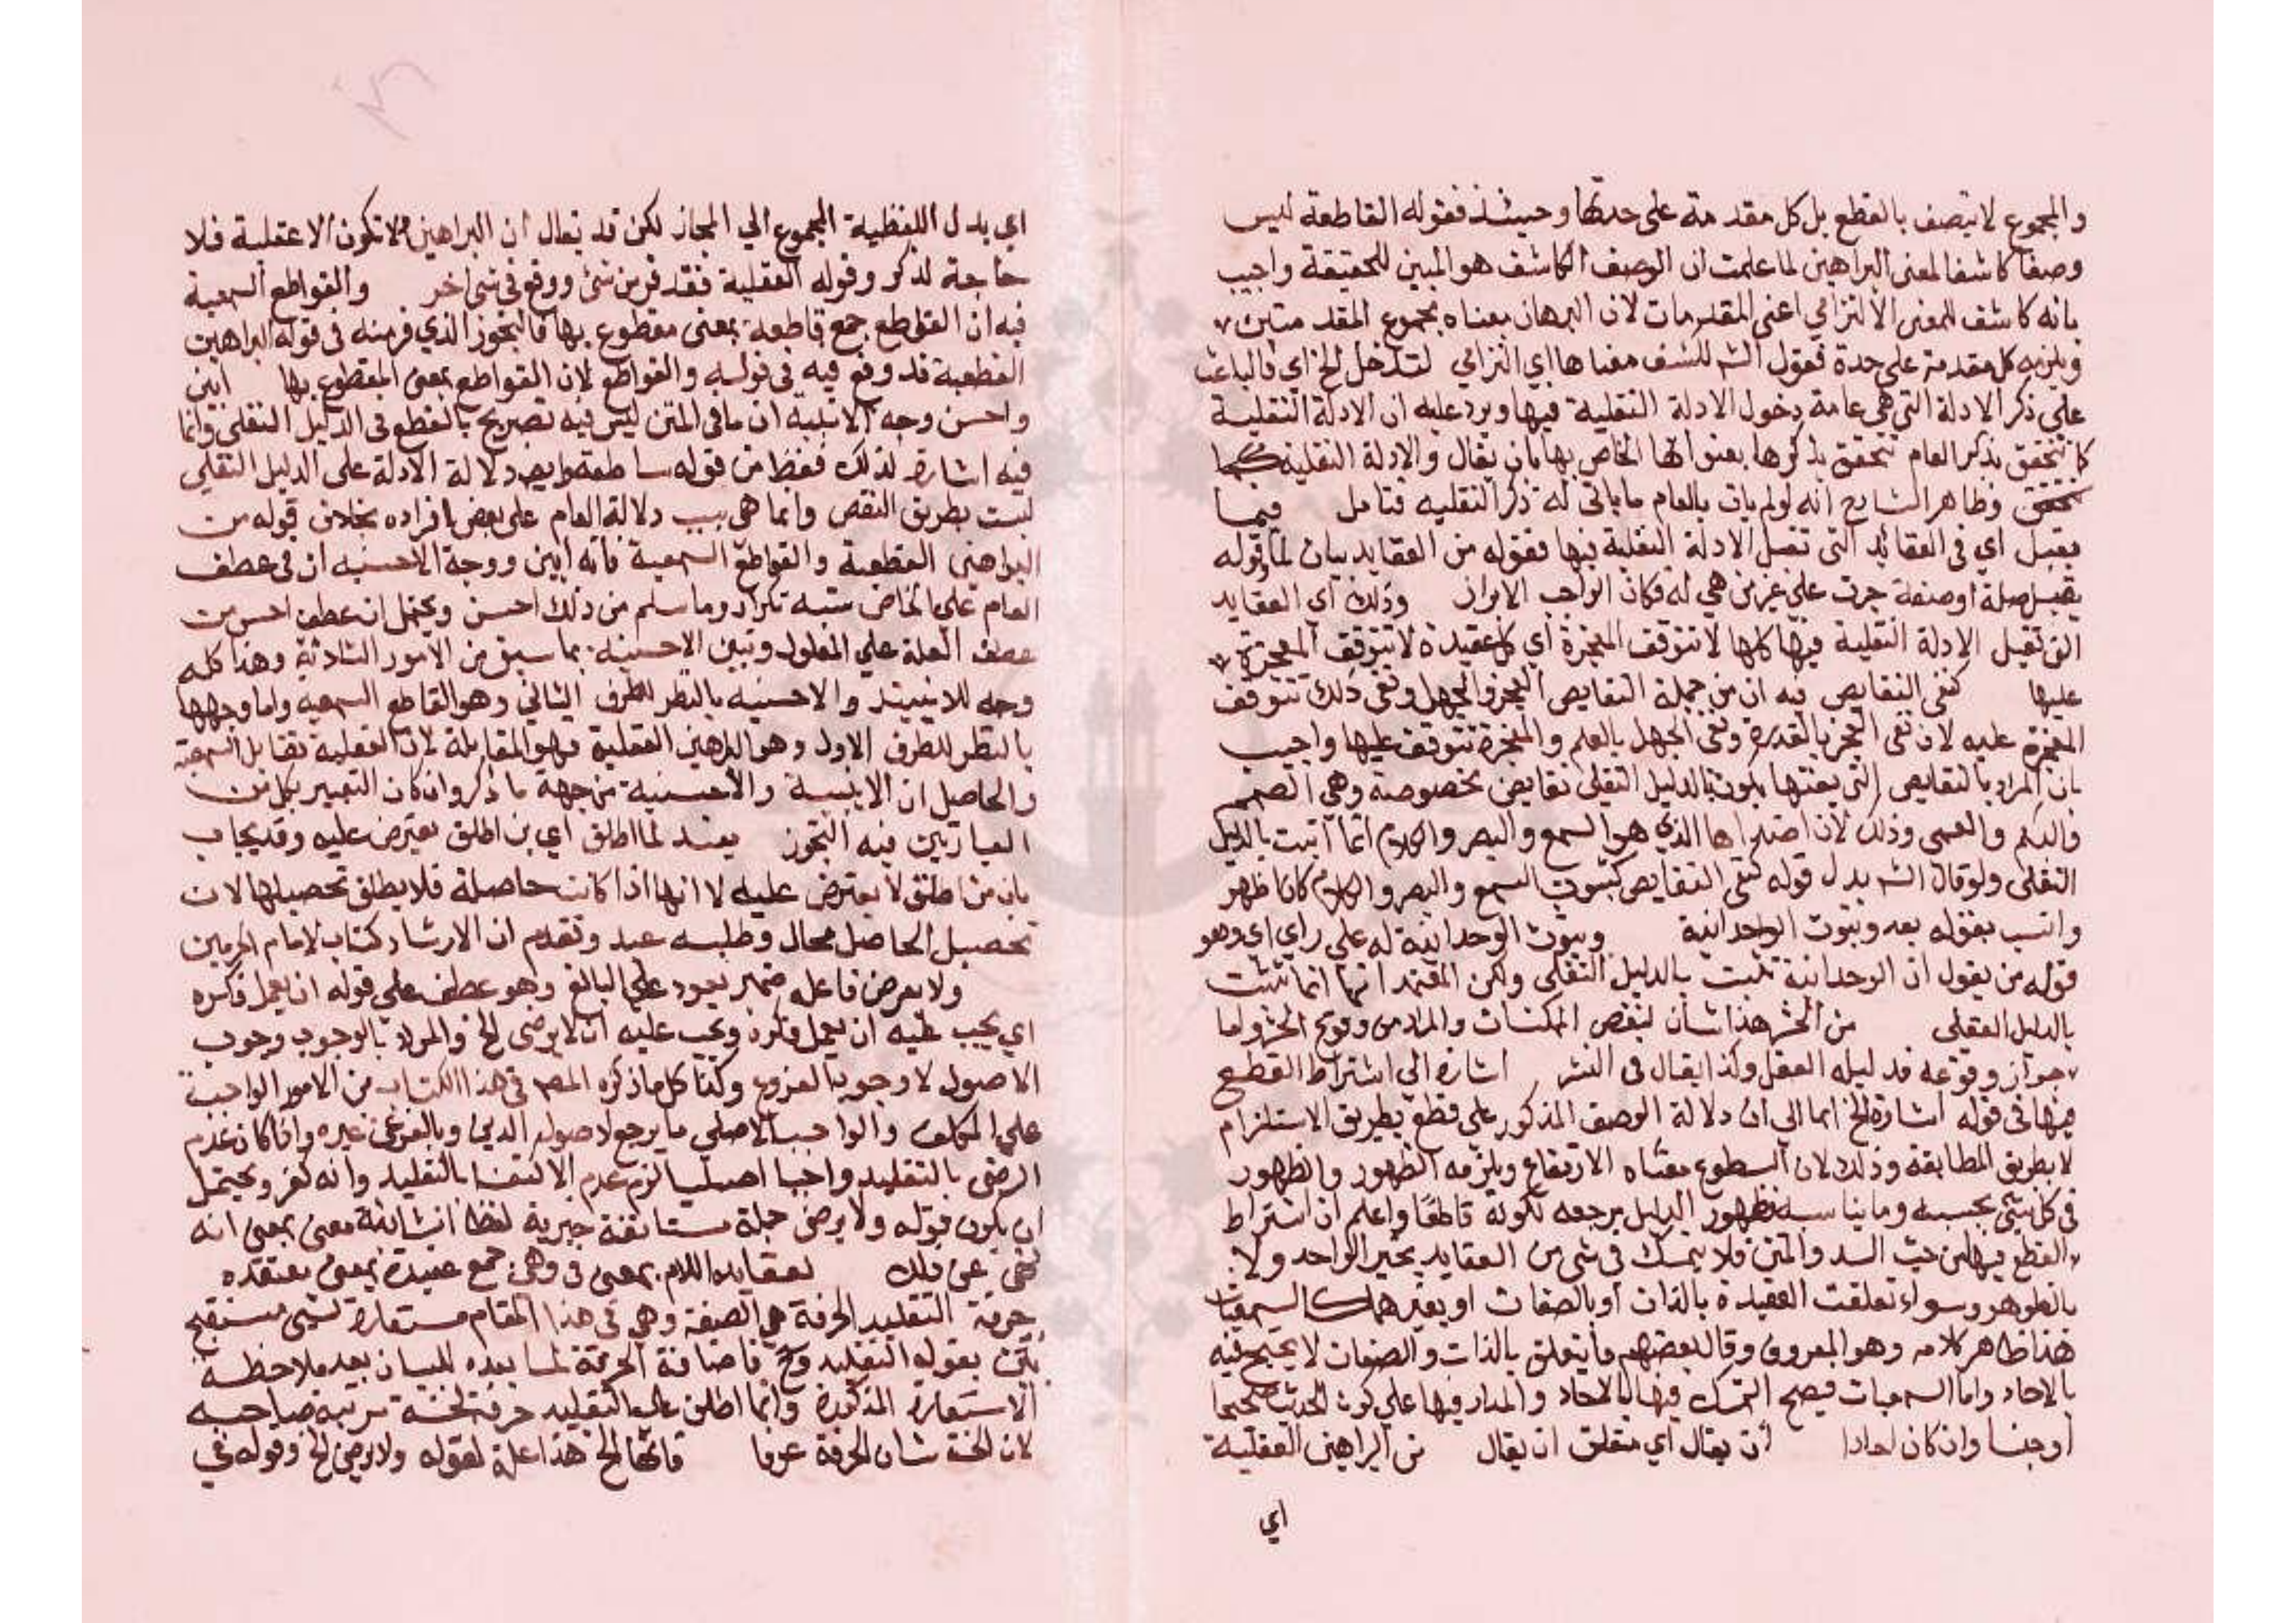 والمجموع لا يتصف بالقطع بل كل مقدمة على حدتها وحينئذ فقوله القاطعة ليس
وصفا كاشفا لمعنى البراهين لما علمت ان الوصف الكاشف هو المبين للحقيقة واجيب
بانه كاشف للمعنى الالتزامي اعنى المقدمات لان البرهان معناه مجموع المقدمتين
ويلزمه كل مقدمة على حدة فقول الشـ للكشف معناها اي التزامي لتدخل الخ اي فالباعث
على ذكر الادلة التي هي عامة دخول الادلة النقلية فيها ويرد عليه ان الادلة النقلية
كما تتحقق بذكر العام تتحقق بذكرها بعنوانها الخاص بها بان يقال والادلة النقلية
وظاهر الشارح انه لو لم يات بالعام ما ياتى له ذكر النقلية فتامل فيما
يقبل اي في العقائد التي تقبل الادلة النقلية فيها فقوله من العقايد بيان لما وقوله
يقبل صلة او صفة جرت على غير من هي له فكان الواجب الابراز وذلك اي العقايد
التي تقبل الادلة النقلية فيها كلها لا تتوقف المعجزة اي كل عقيدة لا تتوقف المعجزة
عليها كنفى النقايص فيه ان من جملة النقايص العجز والجهل ونفى ذلك تتوقف
المعجزة عليه لان نفى العجز بالقدرة ونفى الجهل بالعلم والمعجزة تتوقف عليها واجيب
بان المراد بالنقايص التي يكون بالدليل النقلى نقايص مخصوصة وهي الصمم
والبكم والعمى وذلك لان اضدادها الذي هو السمع والبصر والكلام انما اثبت بالدليل
النقلى ولو قال الشـ بدل قوله كنفى النقايص كثبوت السمع والبصر والكلام كان اظهر
وانسب بقوله بعد وثبوت الوحدانية وثبوت الوحدانية له على راي اي وهو
قوله من يقول ان الوحدانية تثبت بالدليل النقلى ولكن المعتمد انها انما تثبت
بالدليل العقلى من الحشر هذا شان لبعض الممكنات والمراد من وقوع الحشر واما
جواز وقوعه فدليله العقل وكذا يقال فى النشر اشارة الى اشتراط القطع
فيها فى قوله اشارة الخ ايما الى ان دلالة الوصف المذكور على قطع بطريق الاستلزام
لا بطريق المطابقة وذلك لان السطوع معناه الارتفاع ويلزمه الظهور والظهور
فى كل شئ بحسبه وما يناسبه فظهور الدليل مرجعه لكونه قاطعا واعلم ان اشتراط
القطع فيها من حيث السند والمتن فلا يتمسك فى شئ من العقايد بخبر الواحد ولا
بالظواهر وسواء تعلقت العقيدة بالذات او بالصفات او بغيرهما كالسمعيات
هذا ظاهر كلامه وهو المعروف وقال بعضهم ما يتعلق بالذات والصفات لا يحتج فيه
بالاحاد واما السمعيات فيصح التمسك فيها بالاحاد والمدار فيها على كون الحديث صحيحا
او حسنا وان كان احادا ان يقال اي متعلق ان يقال من البراهين العقلية
اي
اي بدل اللفظية المجموع الي المجاز لكن قد يقال ان البراهين لا تكون الا عقلية فلا
حاجة لذكر وقوله العقلية فقد فر من شئ ووقع فى شئ اخر والقواطع السمعية
فيه ان القواطع جمع قاطعة بمعنى مقطوع بها فالتجوز الذي فر منه فى قوله البراهين
القطعية قد وقع فيه فى قوله والقواطع لان القواطع بمعنى المقطوع بها ابين
واحسن وجه الابينية ان ما فى المتن ليس فيه تصريح بالقطع فى الدليل النقلى وانما
فيه اشارة لذلك فقط من قوله ساطعة وايضا دلالة الادلة على الدليل النقلي
ليست بطريق النقص وانما هي بسبب دلالة العام على بعض افراده بخلاف قوله من
البراهين القطعية والقواطع السمعية فانه ابين ووجه الاحسنيه ان فى عطف
العام على الخاص شبه تكرار وما سلم من ذلك احسن ويحتمل ان عطف احسن من
عطف العلة على المعلول وتبين الاحسنيه بما سبق من الامور الثلاثة وهذا كله
وجه للابينية والاحسنيه بالنظر للطرف الثاني وهو القاطع السمعيه واما وجهها
بالنظر للطرف الاول وهو البراهين العقلية فهو المقابلة لان العقلية تقابل السمعية
والحاصل ان الابينية والاحسنية من جهة ما ذكر وان كان التعبير بكل من
العبارتين فيه التجوز يعنـد لما اطلق اي بن اطلق يعترض عليه وقد يجاب
بان من اطلق لا يعترض عليه لا انها اذا كانت حاصلة فلا يطلق تحصيلها لان
تحصيل الحاصل محال وطلبه عبث وتقدم ان الارشاد كتاب لامام الحرمين
ولا يعرض فاعله ضمير يعود على البالغ وهو عطف على قوله ان يعمل فكره
اي يجب عليه ان يعمل فكره ويجب عليه ان لا يرضى الخ والمراد بالوجوب وجوب
الاصول لا وجوب الفروع وكذا كل ما ذكره المصـ فى هذا الكتاب من الامور الواجبة
على المكلف والواجب الاصلي ما يرجع لاصول الدين وبالفرعى غيره واذا كان عدم
الرضى بالتقليد واجبا اصليا لزم عدم الاكتفا بالتقليد وانه كفر ويحتمل
ان يكون قوله ولا يرضى جملة مستانفة خبرية لفظا انشائية معنى بمعنى انه
نهى عن ذلك لعقايده اللام بمعنى فى وهى جمع عقيدة بمعنى معتقده
حرفة التقليد الحرفة هي الصنعة وهي فى هذا المقام مستعارة لشئ مستقبح
بين بقوله التقليد وح فاضافة الحرفة لما بعده للبيان بعد ملاحظة
الاستعارة المذكورة وانما اطلق على التقليد حرفة لخسة مرتبة صاحبه
لان الخسة شان الحرفة عرفا فانها الخ هذا علة لقوله ولا يرضى الخ وقوله فى